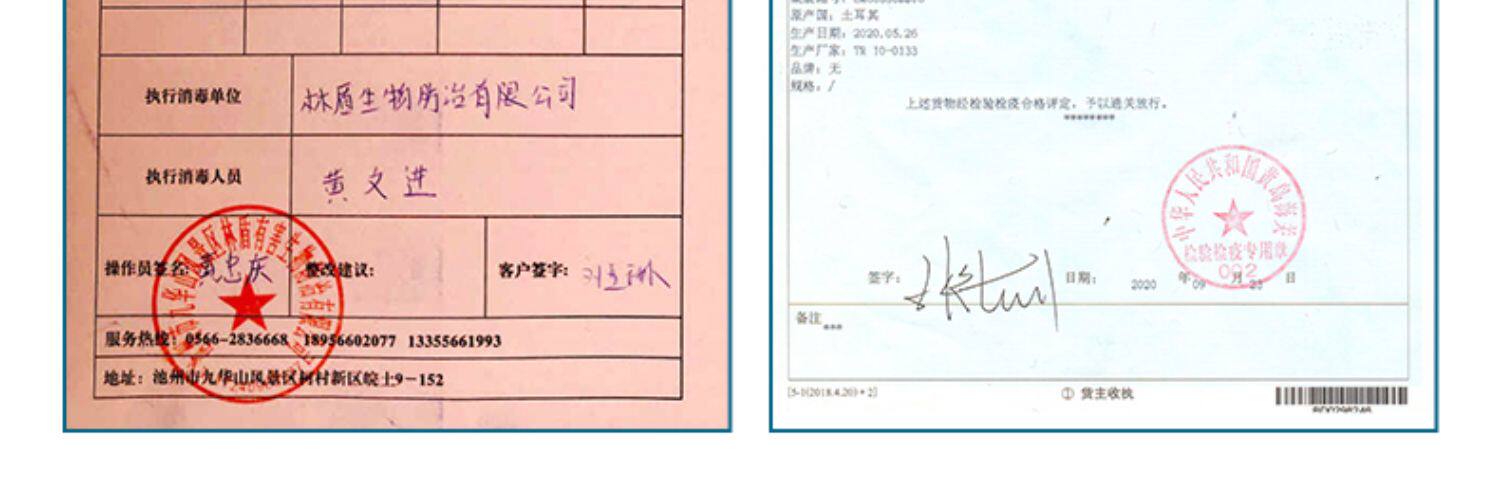 执行消毒单位
林盾生物防治有限公司
执行消毒人员
黄文进
操作员签名:
整改建议:
客户签字:
服务热线: 0566-2836668 18956602077 13355661993
地址: 池州市九华山风景区柯村新区皖士9-152
原产国: 土耳其
生产日期: 2020.05.26
生产厂家: TR 10-0133
品牌: 无
规格: /
上述货物经检验检疫合格评定, 予以通关放行。
********
中华人民共和国黄岛海关
检验检疫专用章
002
签字:
日期: 2020 年 09 月 23 日
备注
***
[5-1(2018.4.20)*2]
① 货主收执